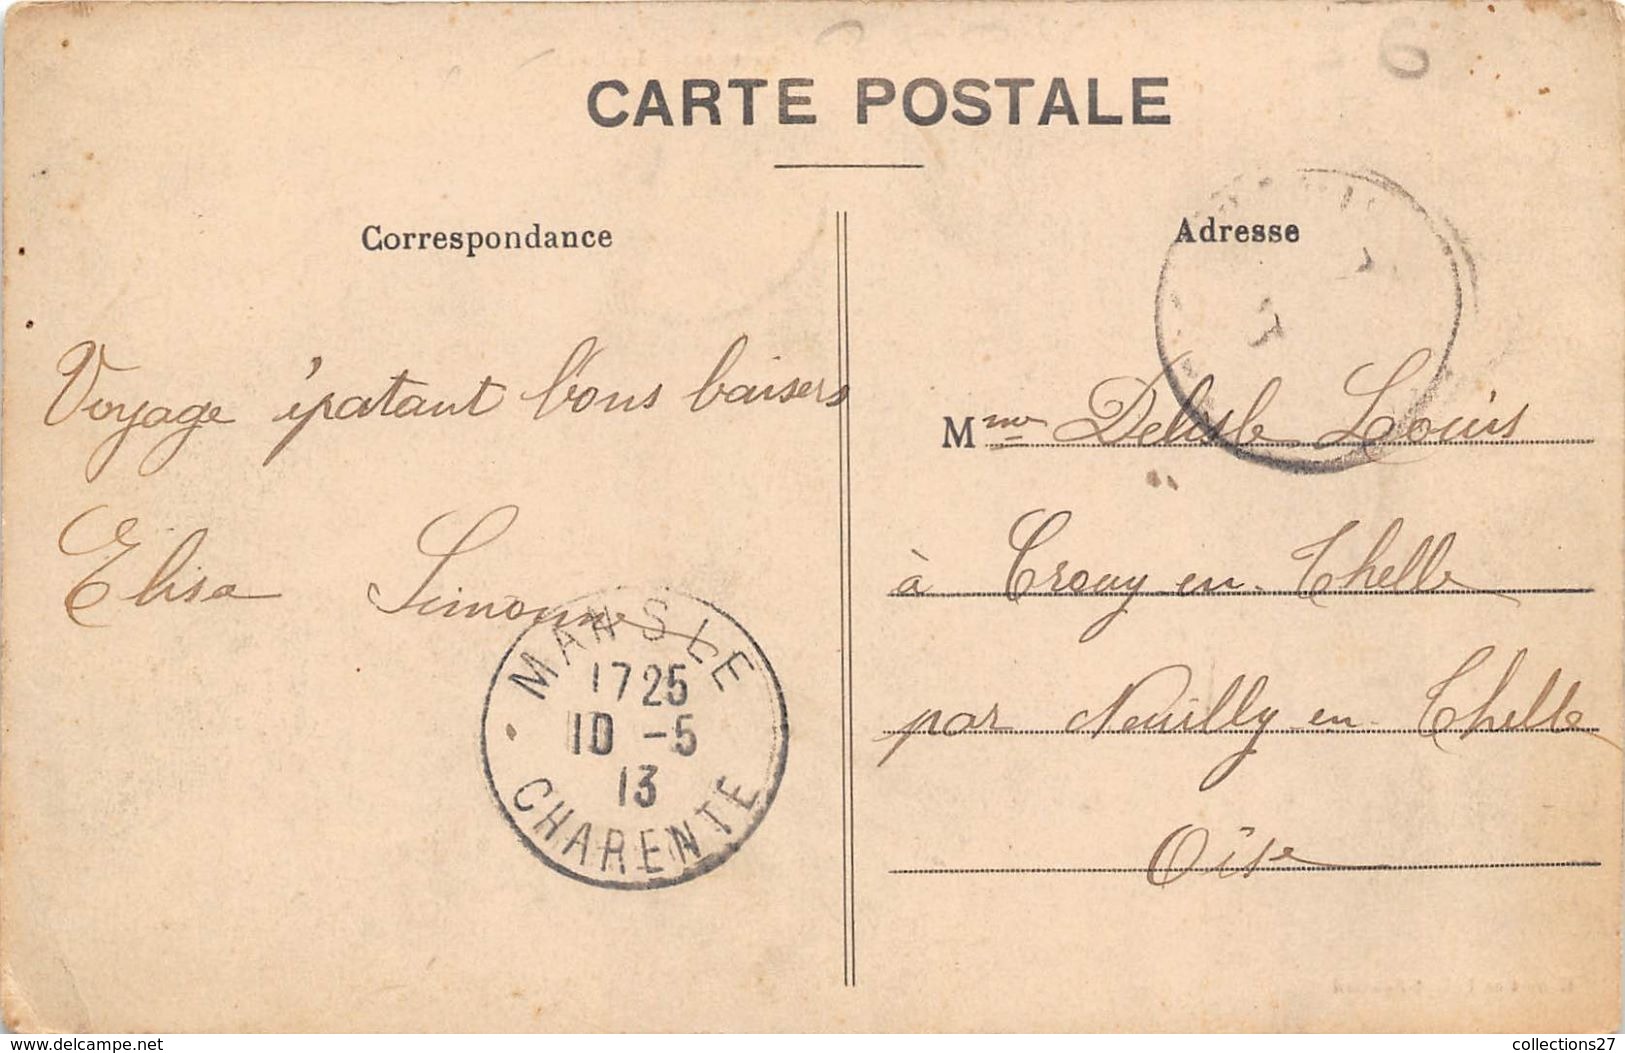 CARTE POSTALE
Correspondance
Adresse
Voyage épatant bons baisers
Elisa Simonne
MANSLE
1725
10 -5
13
CHARENTE
Mme Delisle Louis
à Crouy en Thelle
par Neuilly en Thelle
Oise
delcampe.net
collections27